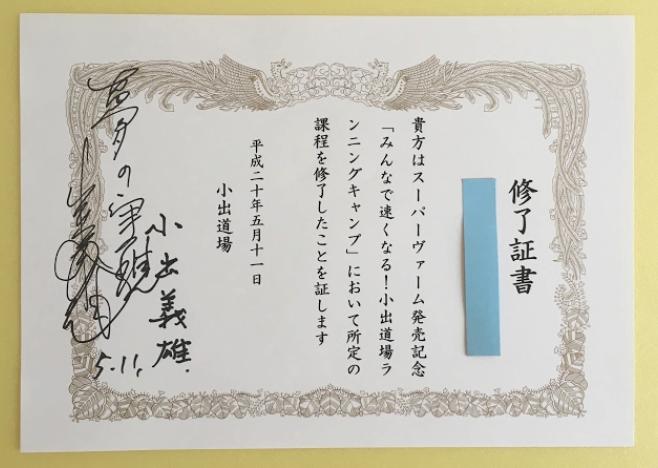 修了証書
貴方はスーパーヴァーム発売記念
「みんなで速くなる!小出道場ラ
ンニングキャンプ」において所定の
課程を修了したことを証します
平成二十年五月十一日
小出道場
小出義雄.
5.11,
夢の実現